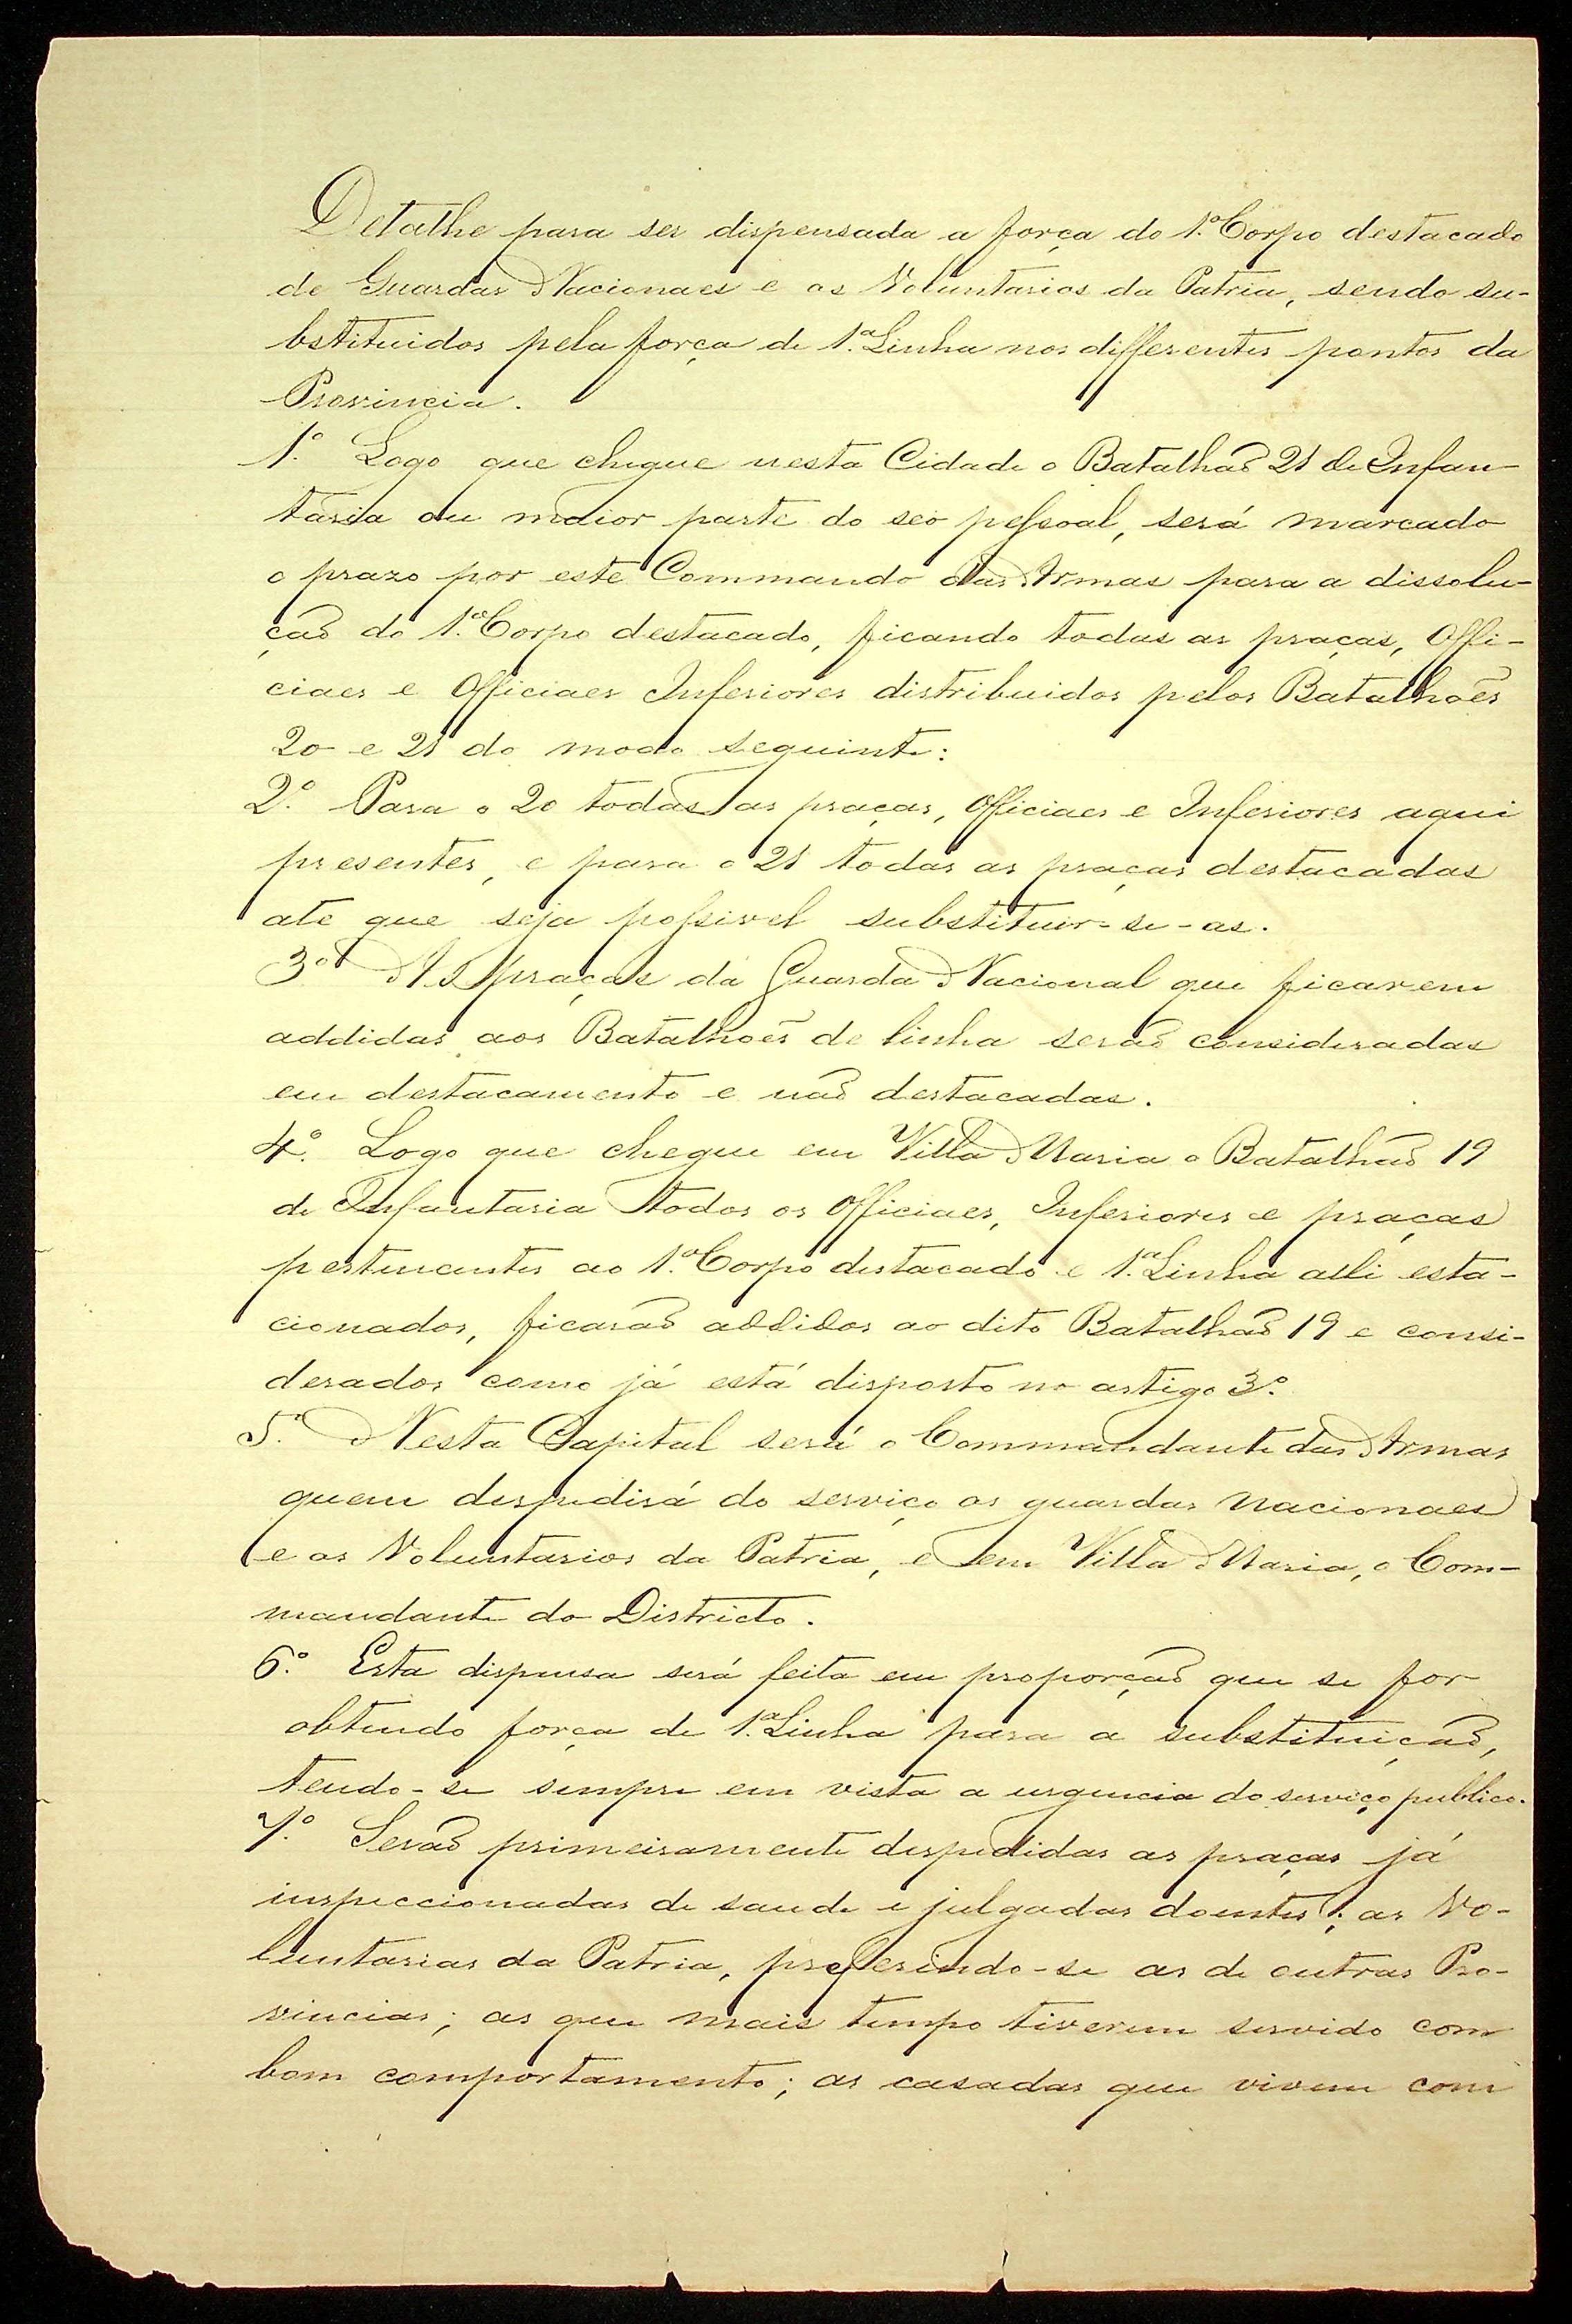 Detalhe para ser dispensada a força do 1.º Corpo destacado
de Guardas Nacionaes e os Voluntarios da Patria, sendo su-
bstituidos pela força de 1.ª Linha nos differentes pontos da
Provincia.
1.º Logo que chegue nesta Cidade o Batalhaõ 21 de Infan-
taria ou maior parte do seo pessoal, será marcado
o prazo por este Commando das Armas para a dissolu-
çaõ do 1.º Corpo destacado, ficando todas as praças, Offi-
ciaes e Officiaes Inferiores distribuidos pelos Batalhoẽs
20 e 21 do modo seguinte:
2.º Para o 20 todas as praças, Officiaes e Inferiores aqui
presentes, e para o 21 todas as praças destacadas
ate que seja possivel substituir-se-as.
3.º As praças da Guarda Nacional que ficarem
addidas aos Batalhoẽs de linha seraõ consideradas
em destacamento e naõ destacadas.
4.º Logo que chegue em Villa Maria o Batalhaõ 19
de Infantaria todos os Officiaes, Inferiores e praças
pertencentes ao 1.º Corpo destacado e 1.ª Linha alli esta-
cionados, ficaraõ addidos ao dito Batalhaõ 19 e consi-
derados como já está disposto no artigo 3.º
5.º Nesta Capital será o Commandante das Armas
quem despedirá do serviço os guardas nacionaes
e os Voluntarios da Patria, e em Villa Maria, o Com-
mandante do Districto.
6.º Esta dispensa será feita em proporçaõ que se for
obtendo força de 1.ª Linha para a substituiçaõ,
tendo-se sempre em vista a urgencia do serviço publico.
7.º Seraõ primeiramente despedidas as praças já
inspeccionadas de saude e julgadas doentes; as Vo-
luntarias da Patria, preferindo-se as de outras Pro-
vincias; as que mais tempo tiverem servido com
bom comportamento; as casadas que vivem com